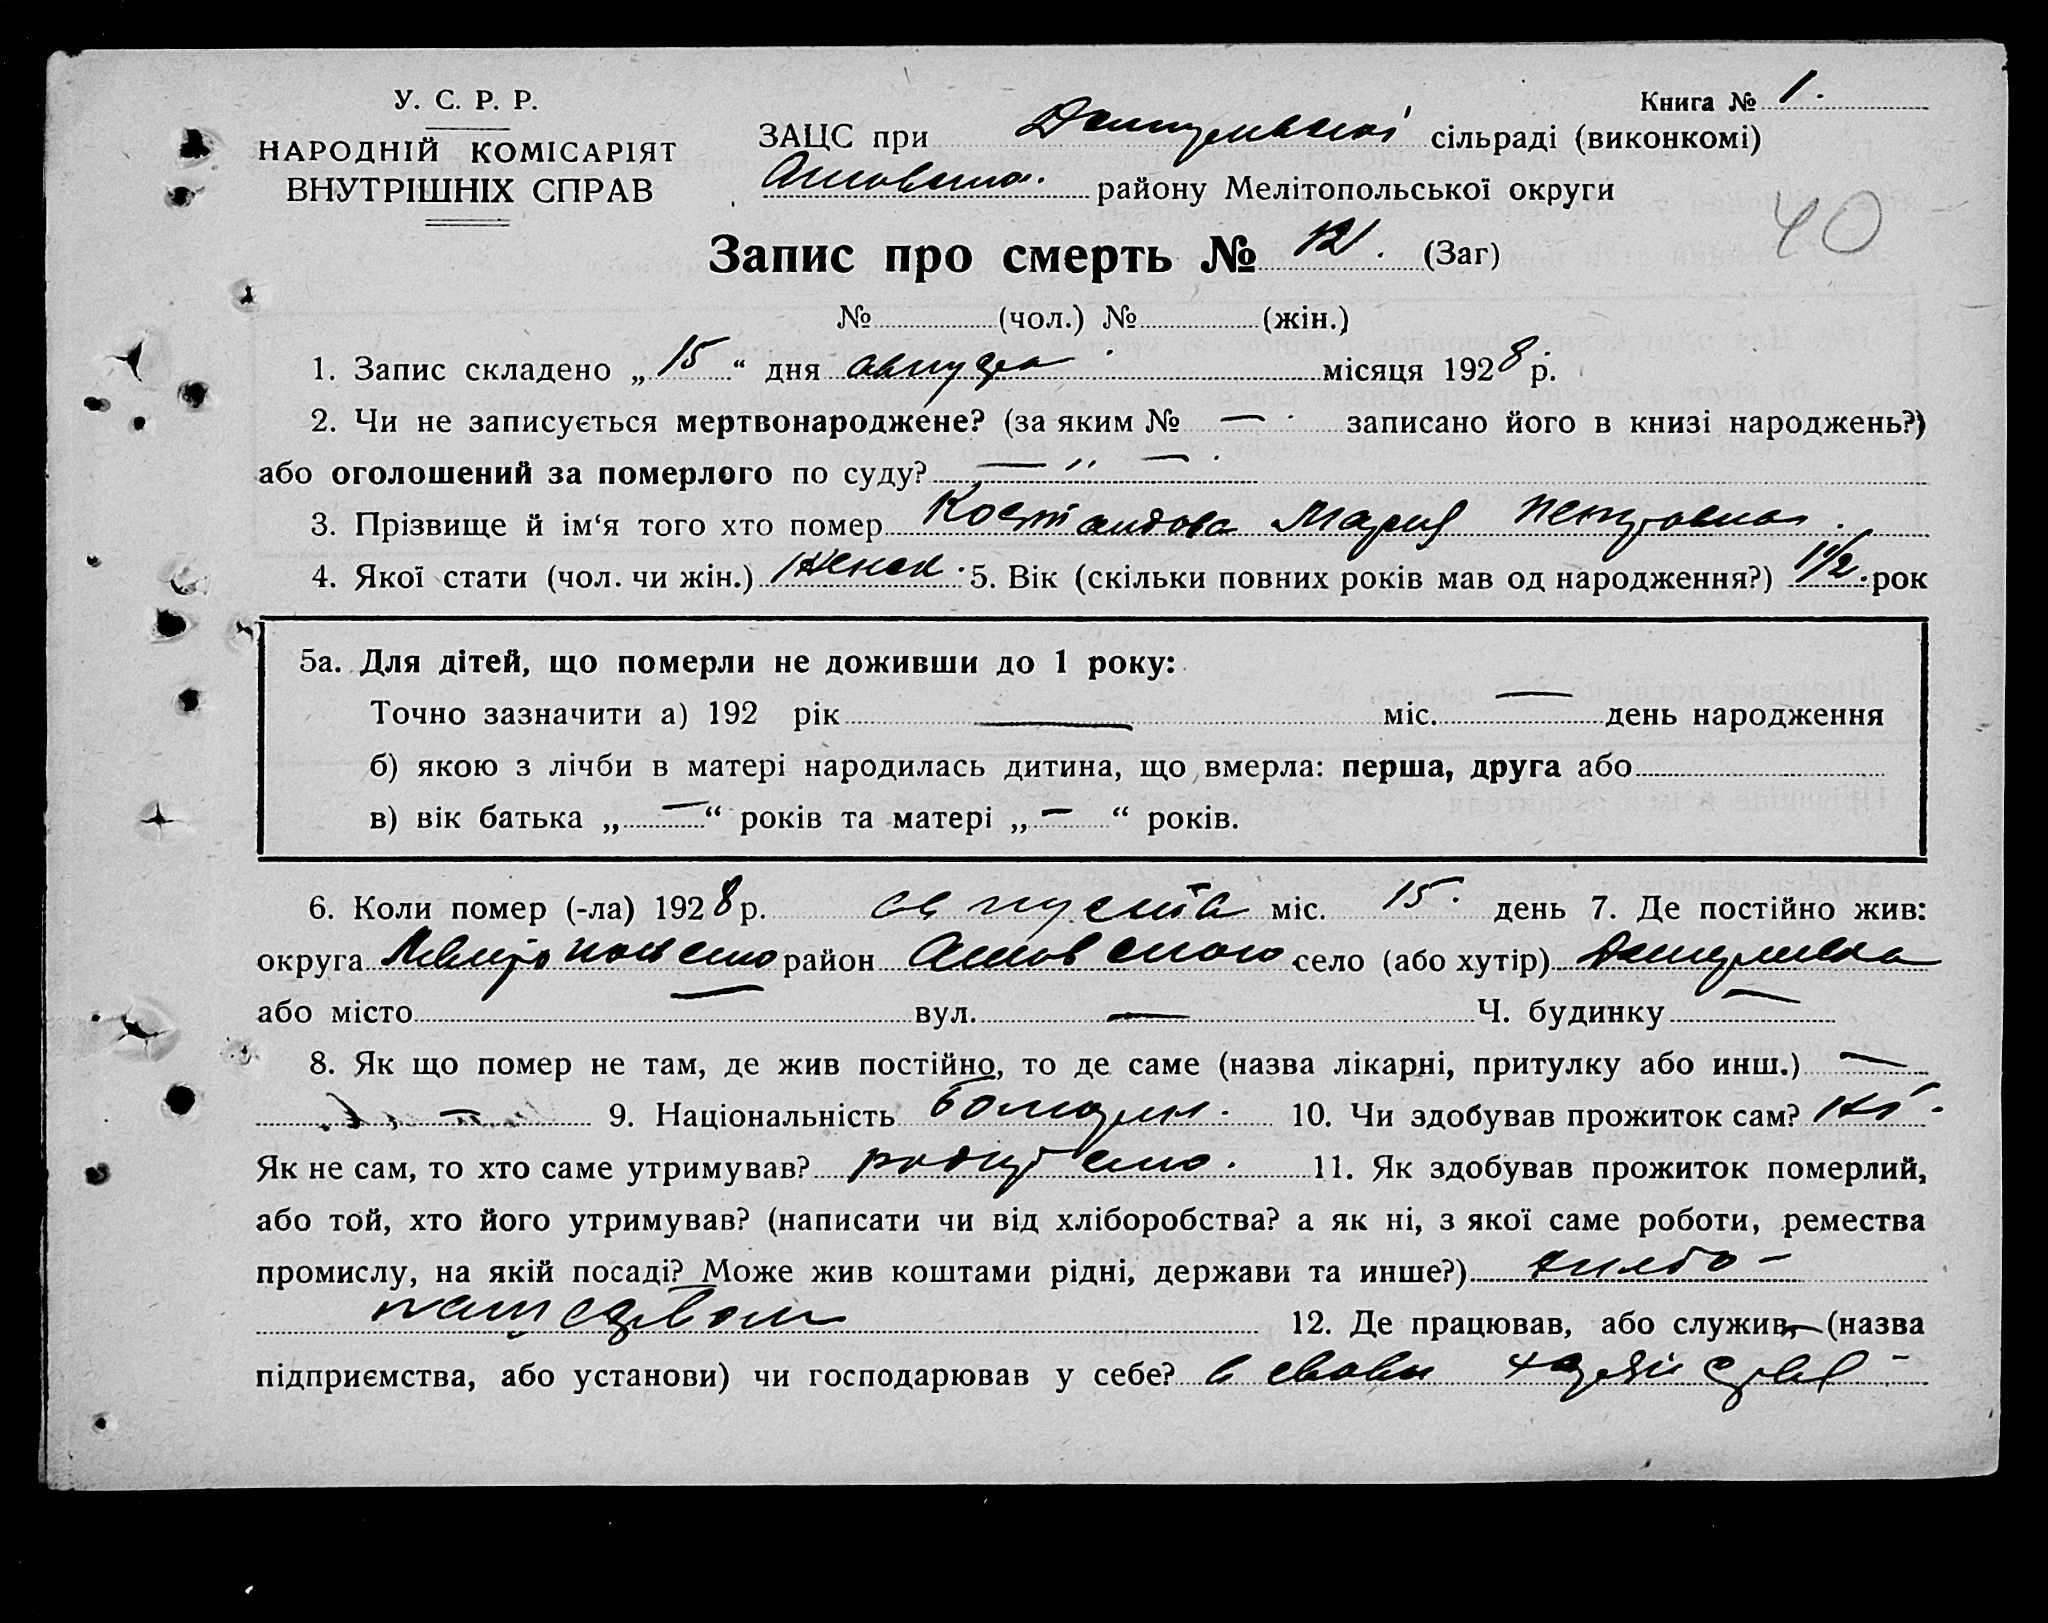 У. С. Р. Р.
НАРОДНІЙ КОМІСАРІЯТ
ВНУТРІШНІХ СПРАВ
Книга № 1.
ЗАЦС при сільраді (виконкомі)
району Мелітопольської округи
40
Запис про смерть № 121. (Заг)
№ (чол.) № (жін.)
1. Запис складено „ 15 “ дня августа місяця 1928 р.
2. Чи не записується мертвонароджене? (за яким № — записано його в книзі народжень?)
або оголошений за померлого по суду? — „ —
3. Прізвище й ім‘я того хто помер Костандова Мария Петровна.
4. Якої стати (чол. чи жін.) Женск. 5. Вік (скільки повних років мав од народження?) 1 1/2. рок
5а. Для дітей, що померли не доживши до 1 року:
Точно зазначити а) 192 рік — міс. — день народження
б) якою з лічби в матері народилась дитина, що вмерла: перша, друга або
в) вік батька „ — “ років та матері „ — “ років.
6. Коли помер (-ла) 1928 р. августа міс. 15. день 7. Де постійно жив:
округа район село (або хутір)
або місто — вул. — Ч. будинку —
8. Як що помер не там, де жив постійно, то де саме (назва лікарні, притулку або инш.) —
9. Національність болгари. 10. Чи здобував прожиток сам? ні.
Як не сам, то хто саме утримував? 11. Як здобував прожиток померлий,
або той, хто його утримував? (написати чи від хліборобства? а як ні, з якої саме роботи, ремества
промислу, на якій посаді? Може жив коштами рідні, держави та инше?) хлебо-
пашеством 12. Де працював, або служив, (назва
підприємства, або установи) чи господарював у себе? в своем